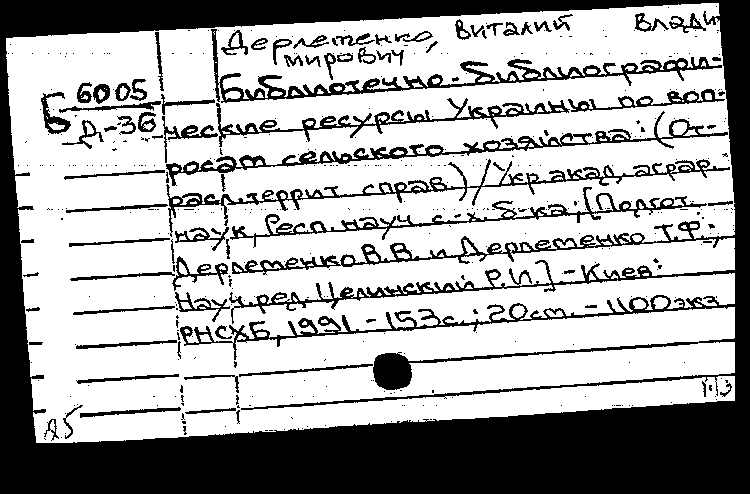 Дерлеменко, Виталий Влади-
мирович
Б 6005
Д-36
Библиотечно-библиографи-
ческие ресурсы Украины по воп-
росам сельского хозяйства: (От-
расл.террит. справ.) / Укр.акад. аграр.
наук, Респ. науч. с.-х. б-ка; [Подгот.
Дерлеменко В.В. и Дерлеменко Т.Ф.;
Науч.ред. Целинский Р.И.] - Киев:
РНСХБ, 1991. - 153с.; 20см. - 1100экз.